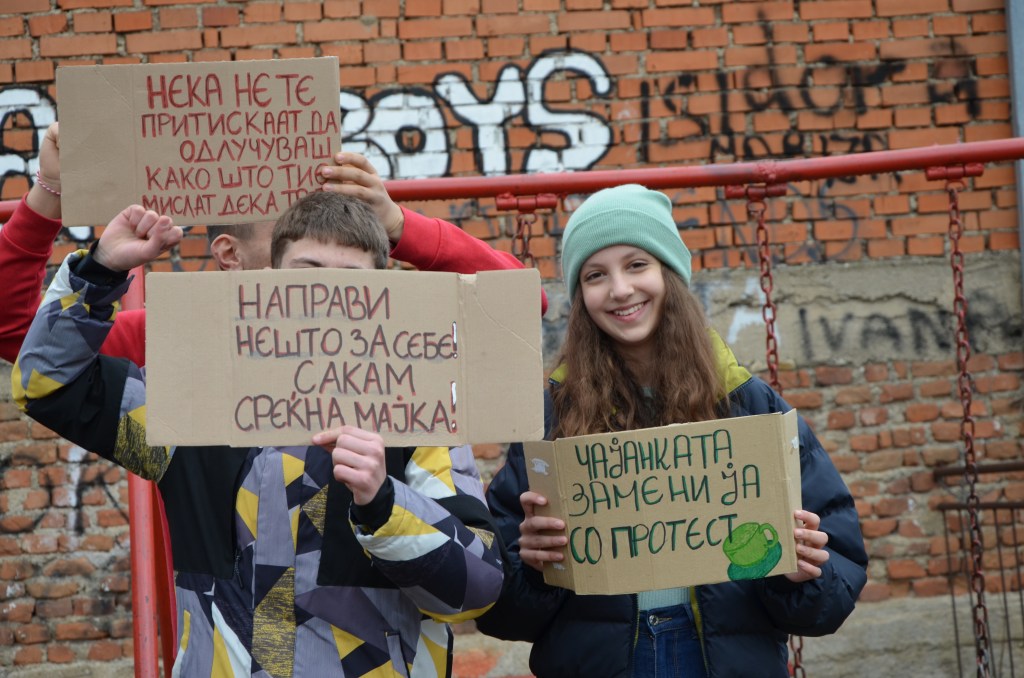 НЕКА НЕ ТЕ
ПРИТИСКААТ ДА
ОДЛУЧУВАШ
КАКО ШТО ТИЕ
МИСЛАТ ДЕКА
BOYS
Isidora
НАПРАВИ
НЕШТО ЗА СЕБЕ!
САКАМ
СРЕЌНА МАЈКА!
Ivan
ЧАЈАНКАТА
ЗАМЕНИ ЈА
СО ПРОТЕСТ